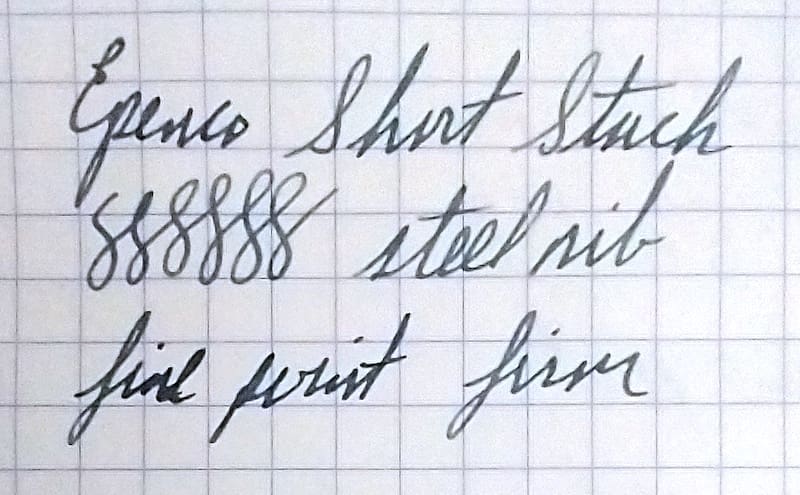 Epenco Short Stack
888888 steel nib
fine point firm